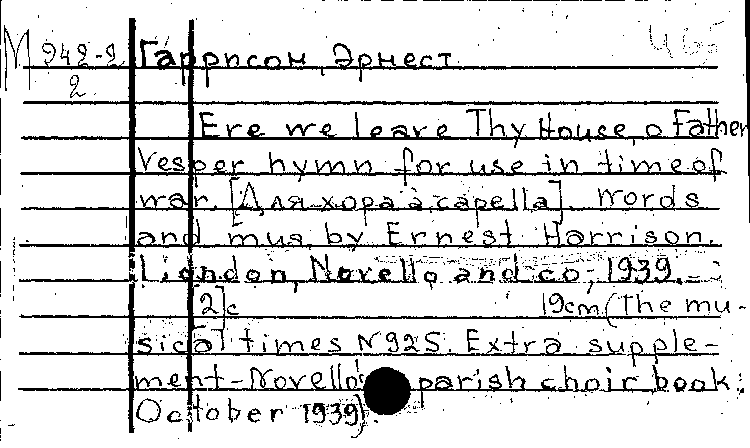 М 942-2 Гаррисон, Эрнест 465
2
Ere we leave Thy House, o Father
Vesper hymn for use in time of
war. [Для хора a capella]. Words
and mus. by Ernest Harrison.
London, Novello and co, 1939.
[2]c 19cm (The mu-
sical times N925. Extra supple-
ment-Novello's parish choir book:
October 1939).